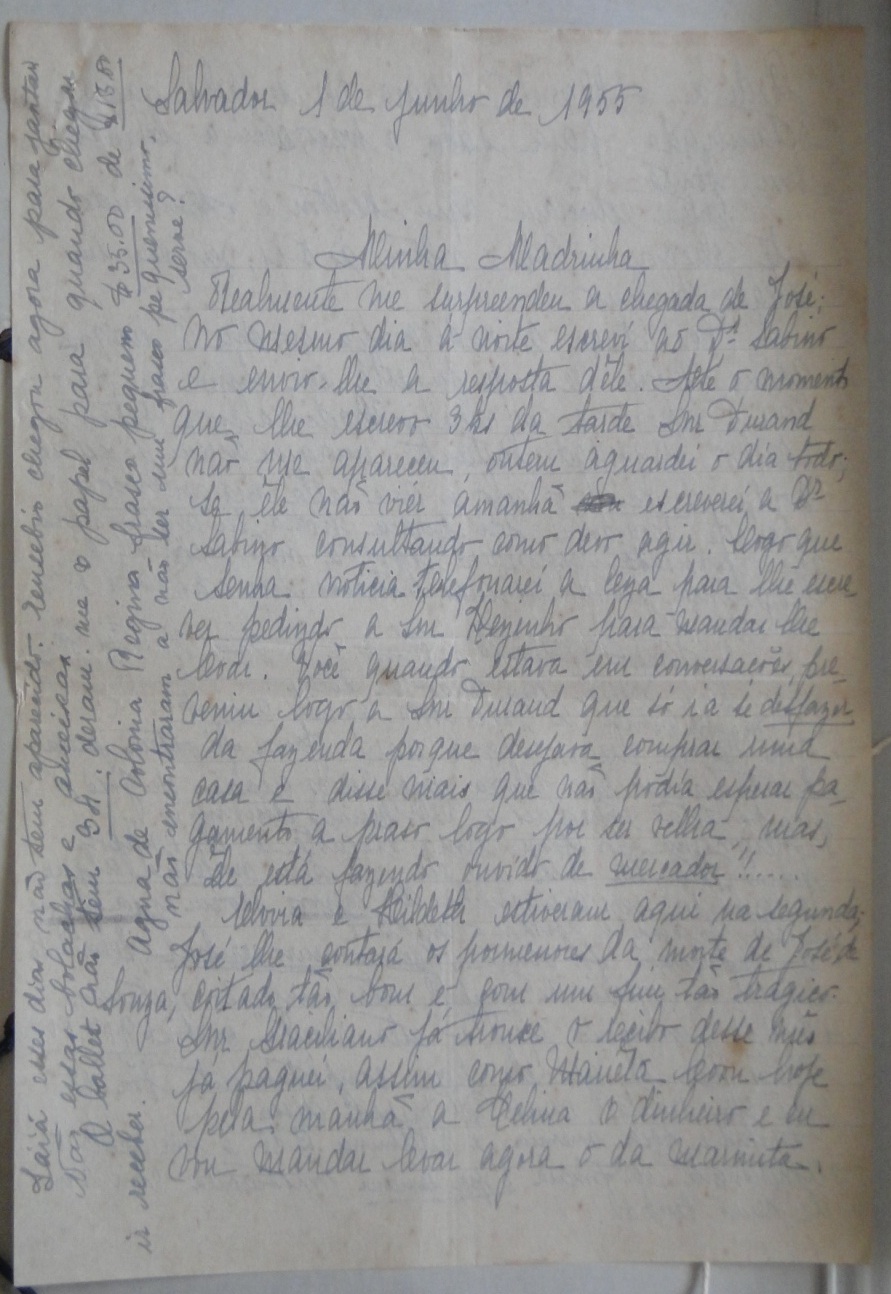 Salvador 1 de Junho de 1955
Minha Madrinha
Realmente me surpreendeu a chegada de José;
no mesmo dia á noite escreví ao Dr. Sabino
e envio-lhe a resposta dêle. Até o momento
que lhe escrevo 3 hs da tarde Snr Durand
não me apareceu, ontem aguardei o dia todo;
se êle não viér amanhã escreverei a Dr
Sabino consultando como devo agir. Logo que
tenha noticia telefonarei a para lhe escre
ver pedindo a Snr Dezinho para mandar lhe
levar. Você quando estava em conversações, pre-
veniu logo a Snr Durand que só ia se desfazer
da fazenda porque desejava comprar uma
casa e disse mais que não podia esperar pa-
gamento a praso logo por ser velha, mas,
êle está fazendo ouvido de mercador!!.....
e Hildeth estiveram aqui na segunda;
José lhe contará os pormenores da morte de José de
Souza, coitado, tão bom e com um fim tão tragico.
Snr Graciliano já trouxe o recibo desse mês
já paguei, assim como levou hoje
pela manhã a Celina o dinheiro e eu
vou mandar levar agora o da marmita.
Laiá esses dias não tem aparecido. chegou agora para jantar
Vão essas bolachas e
O ballet não tem 38. deram-me o papel para quando chegar
ir receber.
Agua de Colonia Regina frasco pequeno $35.00 de
não encontraram a não ser um frasco pequenissimo.
serve?